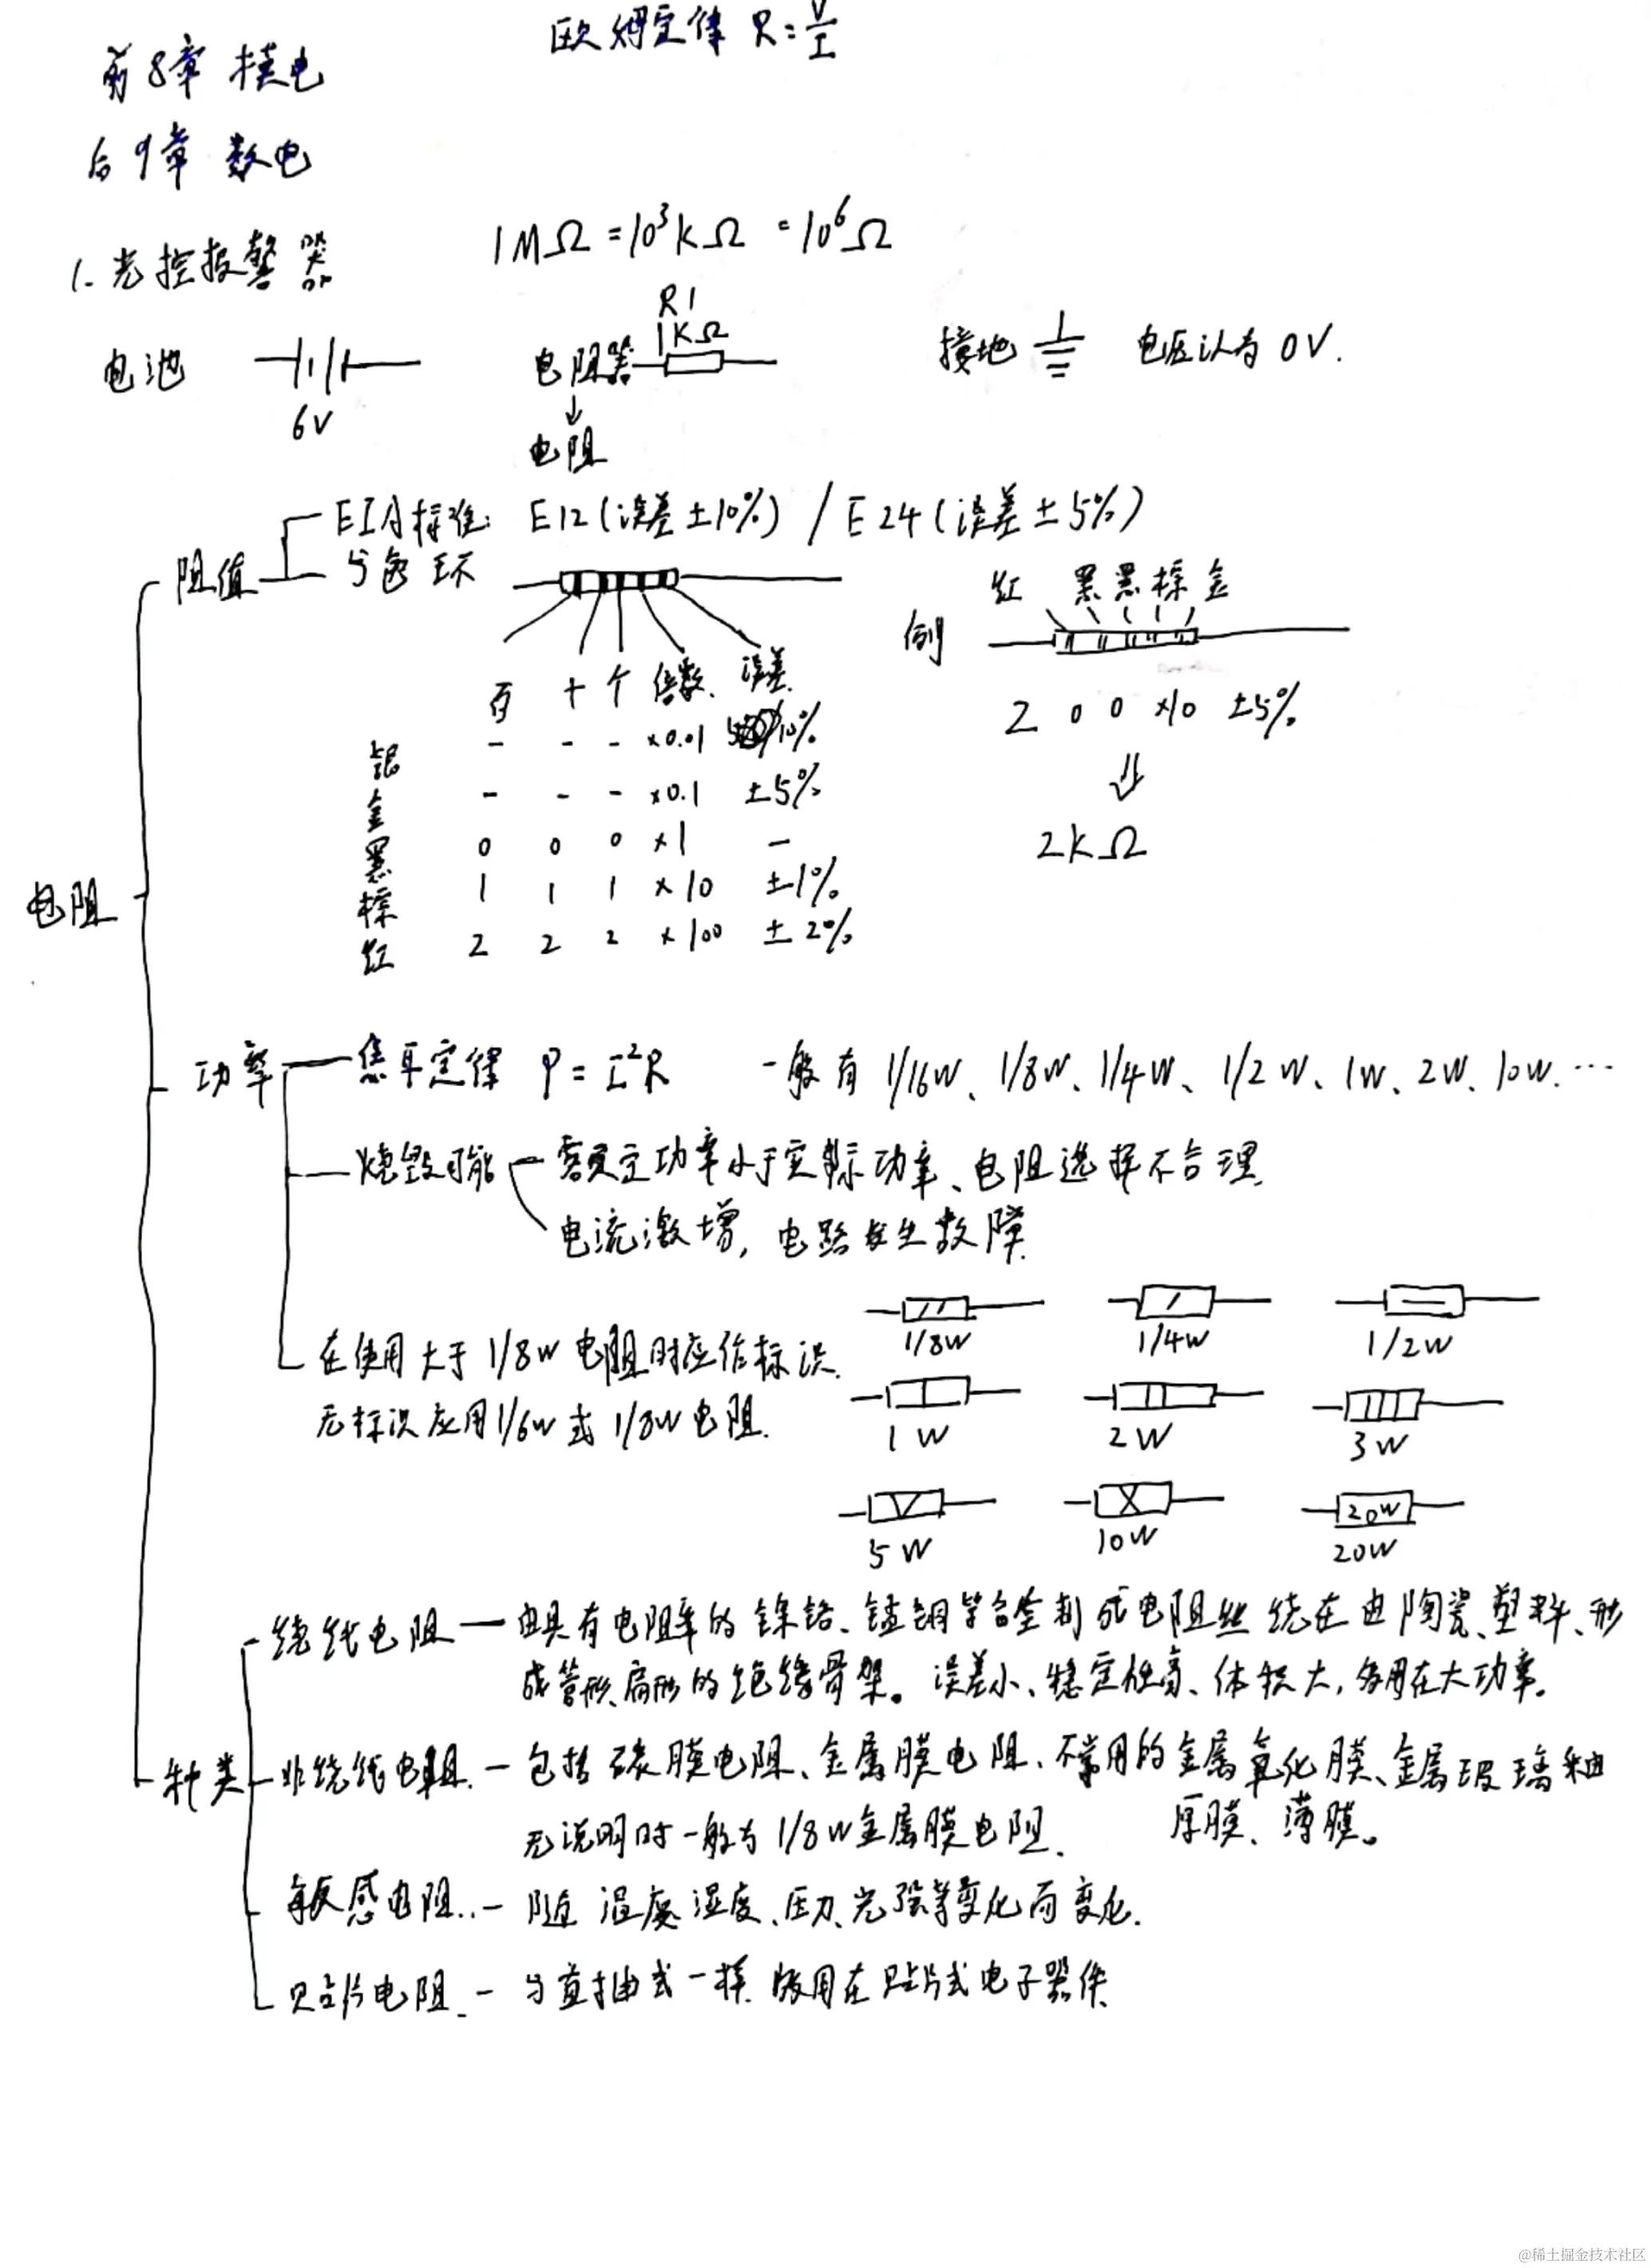 欧姆定律 R=V/I
前8章 模电
后9章 数电
1MΩ=10³kΩ=10⁶Ω
1.光控报警器
电池
6V
电阻器
R1
1KΩ
↓
电阻
接地
电压认为0V.
电阻
阻值
EIA标准: E12(误差±10%) / E24(误差±5%)
5色环
百 十 个 倍数. 误差.
银 - - - ×0.01 10%
金 - - - ×0.1 ±5%
黑 0 0 0 ×1 -
棕 1 1 1 ×10 ±1%
红 2 2 2 ×100 ±2%
例
红 黑 黑 棕 金
2 0 0 ×10 ±5%
⇓
2kΩ
功率
焦耳定律 P=I²R 一般有 1/16W、1/8W、1/4W、1/2W、1W、2W、10W.…
烧毁可能
额定功率小于实际功率、电阻选择不合理.
电流激增, 电路发生故障.
在使用大于1/8W电阻时应作标识.
无标识应用1/6W或1/8W电阻.
1/8W 1/4W 1/2W
1W 2W 3W
5W 10W 20W
20W
种类
绕线电阻 — 由具有电阻率的镍铬、锰铜等合金制成电阻丝绕在由陶瓷、塑料、形
成管形、扁形的绝缘骨架。误差小、稳定性高、体积大,多用在大功率。
非绕线电阻. - 包括碳膜电阻、金属膜电阻、不常用的金属氧化膜、金属玻璃釉
厚膜、薄膜。
无说明时一般为1/8W金属膜电阻.
敏感电阻.. - 随温度湿度、压力、光强等变化而变化.
贴片电阻. - 与直插式一样 用在贴片式电子器件
@稀土掘金技术社区